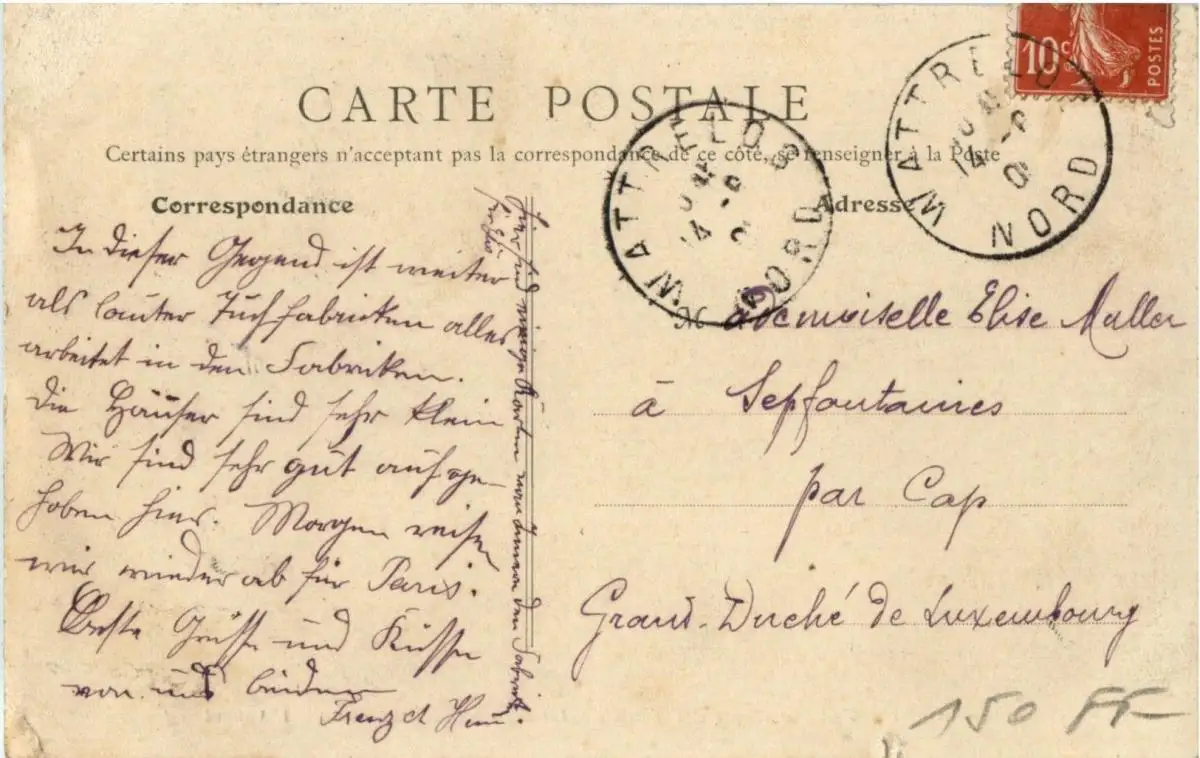 CARTE POSTALE
Certains pays étrangers n'acceptant pas la correspondance de ce côté, se renseigner à la Poste
Correspondance
Adresse
10c
POSTES
WATTRELOS
NORD
WATTRELOS
NORD
In dieser Gegend ist weiter
als lauter Tuchfabriken alles
arbeitet in den Fabriken.
Die Häuser sind sehr klein
Wir sind sehr gut aufge-
hoben hier. Morgen reisen
wir wieder ab für Paris.
Beste Grüsse und Küsse
von uns beiden
Mademoiselle Elise Muller
à Sepfontaines
par Cap
Grand-Duché de Luxembourg
150 FF